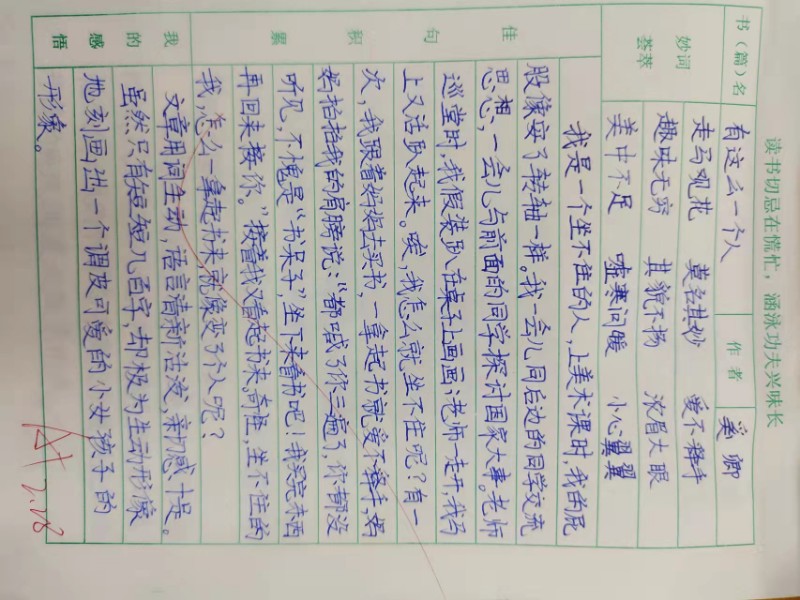 读书切忌在慌忙，涵泳功夫兴味长
书（篇）名 有这么一个人 作者 奚卿
妙词荟萃
走马观花 莫名其妙 爱不释手
趣味无穷 其貌不扬 浓眉大眼
美中不足 嘘寒问暖 小心翼翼
佳句积累
我是一个坐不住的人，上美术课时，我的屁
股像安了转轴一样。我一会儿同后边的同学交流
思想，一会儿与前面的同学探讨国家大事。老师
巡堂时，我假装趴在桌子上画画，老师一走开，我马
上又活跃起来。唉，我怎么就坐不住呢？有一
次，我跟着妈妈去买书，一拿起书就爱不释手，妈
妈拍拍我的肩膀说：“都喊了你三遍了，你都没
听见，不愧是“书呆子”坐下来看书吧！我买完东西
再回来接你。”接着我又看起书来，奇怪，坐不住的
我，怎么一拿起书来就像变了个人呢？
我的感悟
文章用词生动，语言清新活泼，亲切感十足。
虽然只有短短几百字，却极为生动形象
地刻画出一个调皮可爱的小女孩子的
形象。
A+ 2.28